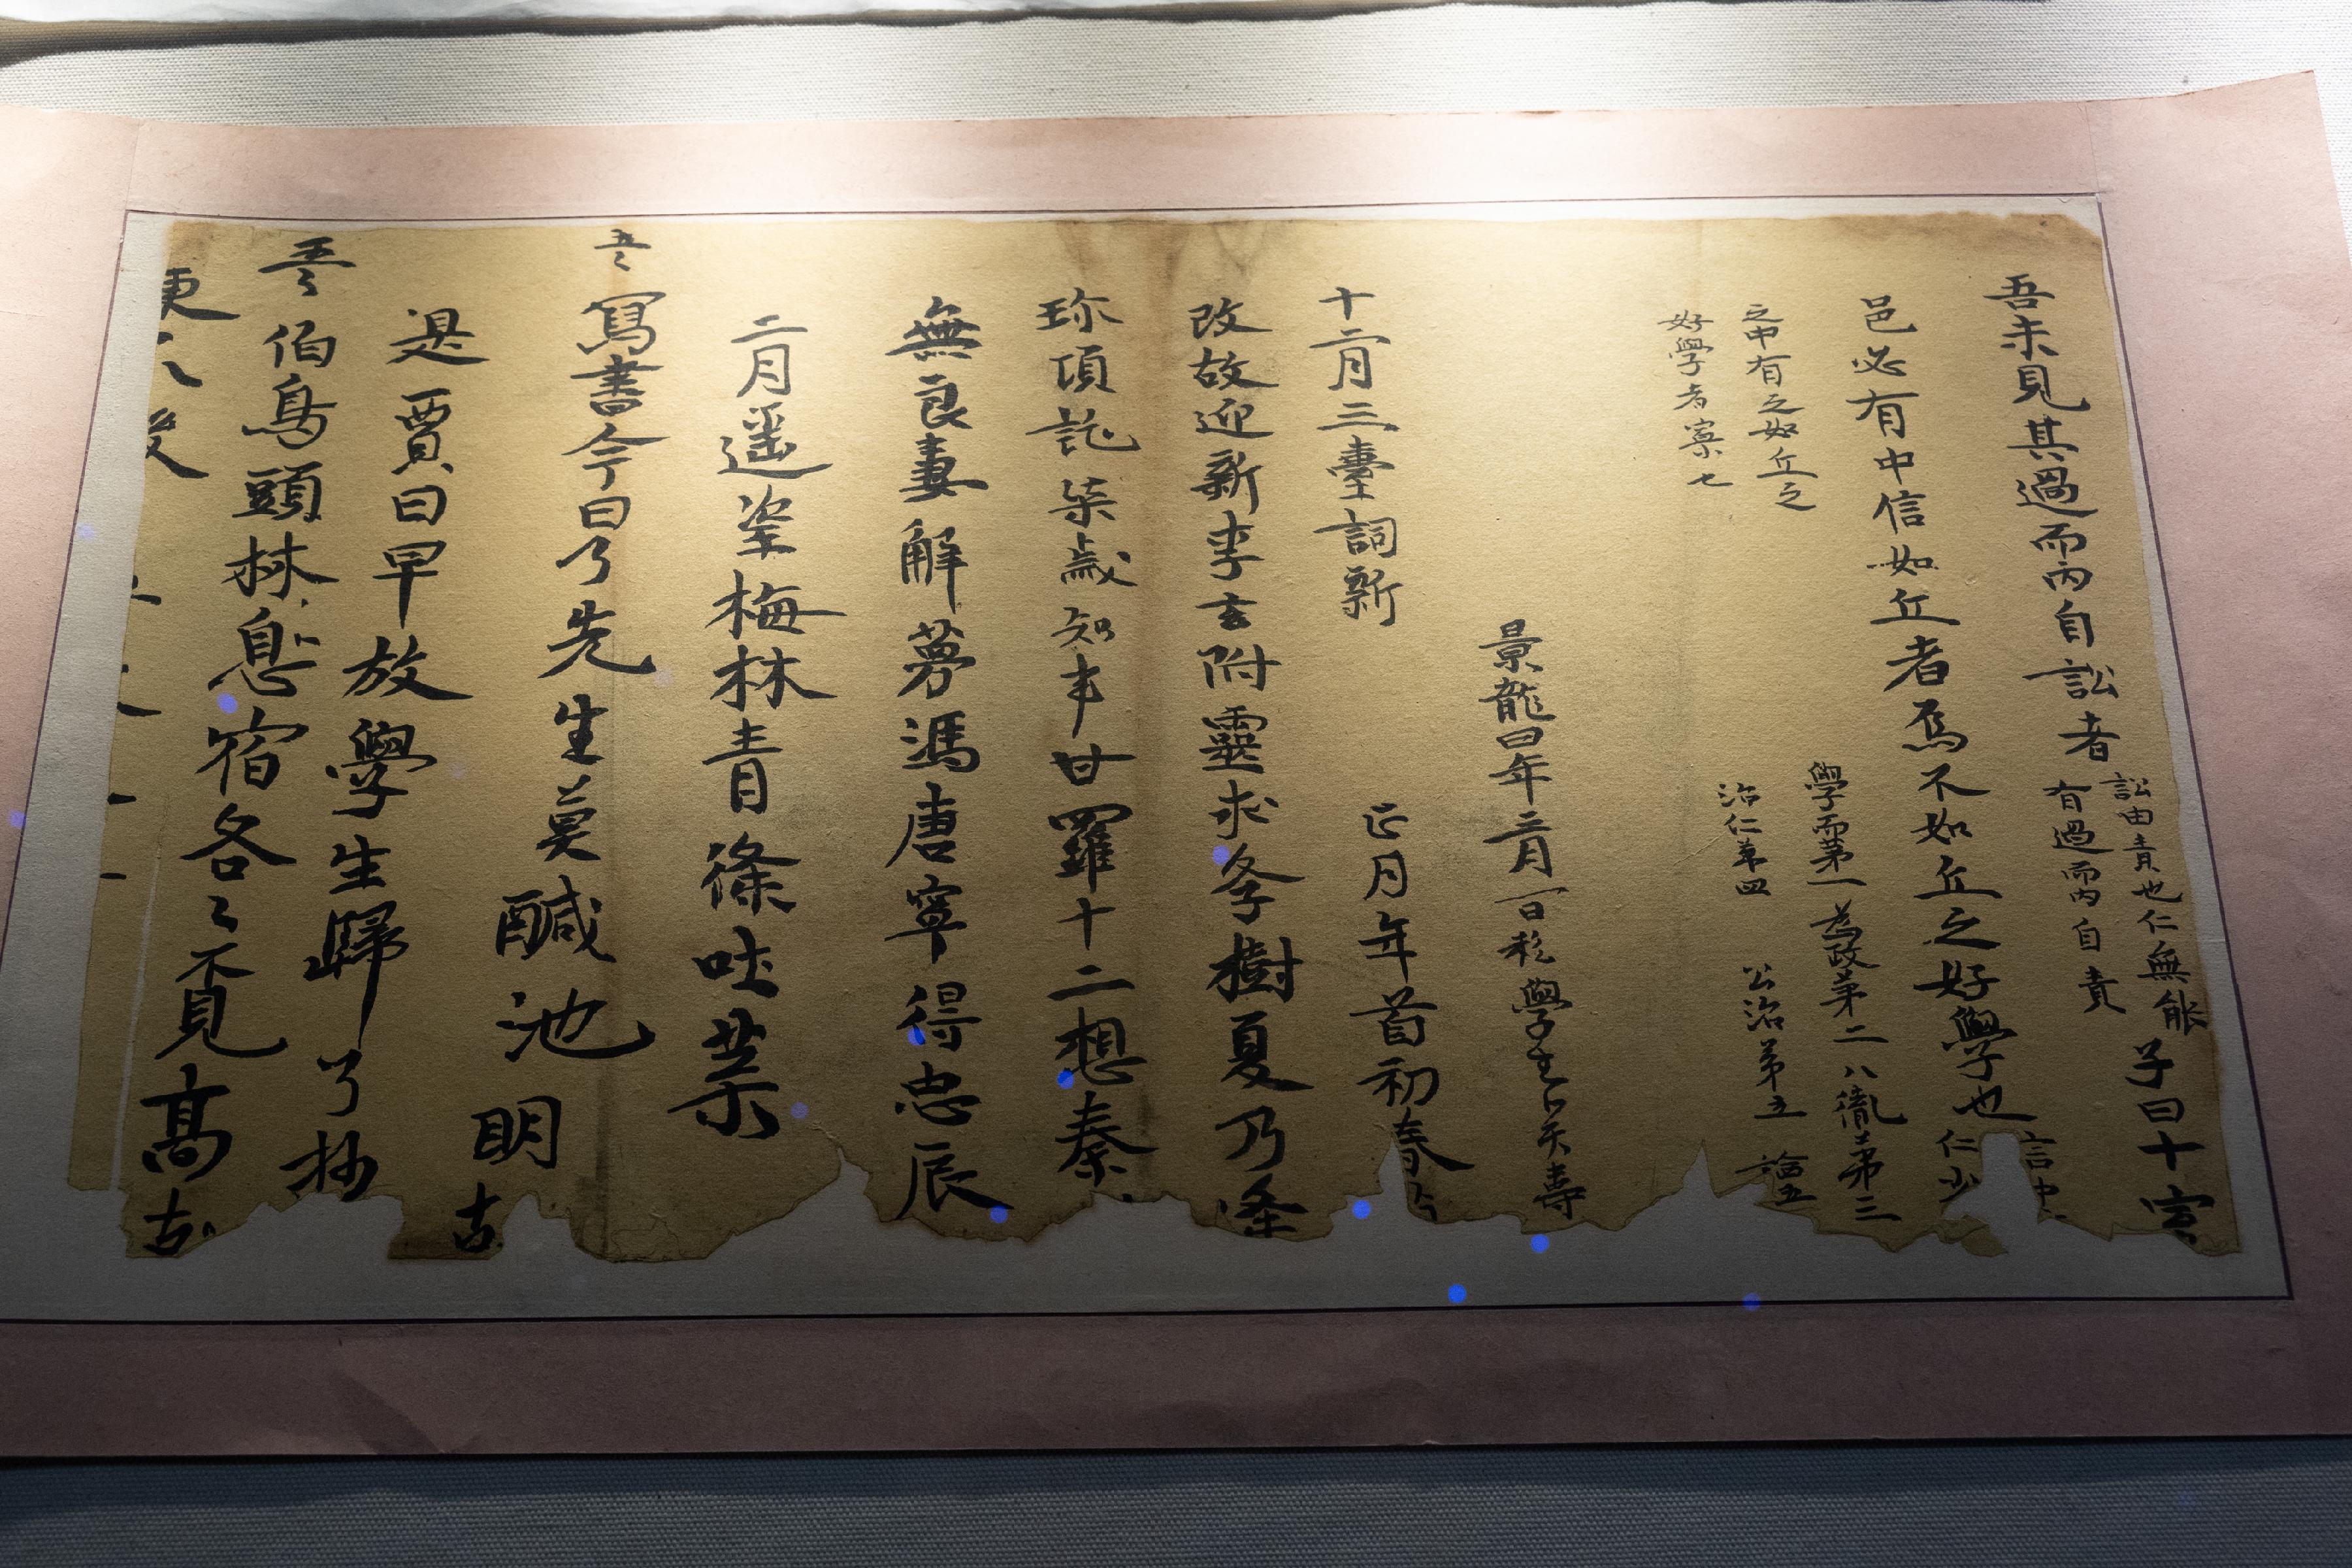 吾未見其過而內自訟者
訟由責也仁無能
有過而內自責
子曰十室
邑必有中信如丘者焉不如丘之好學也
言中
仁少
之中有之如丘之
好學者寡七
學而苐一為政苐二八佾苐三
治仁苐四 公治苐五 論五
景龍四年三月一日私學生卜天壽
十二月三臺詞新 正月年首初春
改故迎新李玄附靈求條樹夏乃逢
珎項託柒歲知事甘羅十二想秦
無良妻解夢馮唐寧得忠辰
二月遥望梅林青條吐葉
五〻
寫書今日了先生莫醎池明
古
是賈日早放學生歸了抄
五〻
伯鳥頭林息宿各〻覓高古